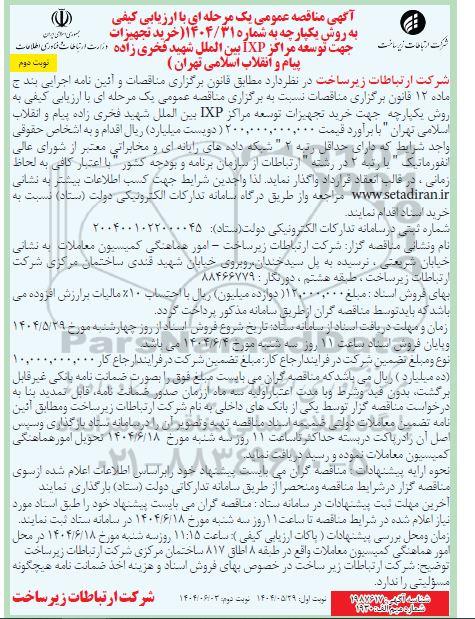 آگهی مناقصه عمومی یک مرحله ای با ارزیابی کیفی
به روش یکپارچه به شماره ۱۴۰۴/۳۱(خرید تجهیزات
جهت توسعه مراکز IXP بین الملل شهید فخری زاده
پیام و انقلاب اسلامی تهران )
شرکت ارتباطات زیرساخت
جمهوری اسلامی ایران
وزارت ارتباطات و فناوری اطلاعات
نوبت دوم
شرکت ارتباطات زیرساخت در نظر دارد مطابق قانون برگزاری مناقصات و آئین نامه اجرایی بند ج
ماده ۱۲ قانون برگزاری مناقصات نسبت به برگزاری مناقصه عمومی یک مرحله ای با ارزیابی کیفی به
روش یکپارچه جهت خرید تجهیزات توسعه مراکز IXP بین الملل شهید فخری زاده پیام و انقلاب
اسلامی تهران " با برآورد قیمت ۲۰۰,۰۰۰,۰۰۰,۰۰۰ ( دویست میلیارد) ریال اقدام و به اشخاص حقوقی
واجد شرایط که دارای حداقل رتبه ۲ " شبکه داده های رایانه ای و مخابراتی معتبر از شورای عالی
انفورماتیک " یا رتبه ۲ در رشته " ارتباطات از سازمان برنامه و بودجه کشور " با اعتبار کافی به لحاظ
زمانی ، در قالب انعقاد قرارداد واگذار نماید. لذا واجدین شرایط جهت کسب اطلاعات بیشتر به نشانی
www.setadiran.ir مراجعه واز طریق درگاه سامانه تدارکات الکترونیکی دولت (ستاد) نسبت به
خرید اسناد اقدام نمایند.
شماره ثبتی درسامانه تدارکات الکترونیکی دولت(ستاد): ۲۰۰۴۰۰۱۰۲۲۰۰۰۰۴۵
نام ونشانی مناقصه گزار: شرکت ارتباطات زیرساخت – امور هماهنگی کمیسیون معاملات به نشانی
خیابان شریعتی ، نرسیده به پل سیدخندان،روبروی خیابان شهید قندی ساختمان مرکزی شرکت
ارتباطات زیرساخت ، طبقه هشتم ، دورنگار : ۸۸۴۶۶۷۷۹
بهای فروش اسناد : مبلغ ۱۲,۰۰۰,۰۰۰( دوازده میلیون) ریال با احتساب ۱۰٪ مالیات برارزش افزوده می
باشدکه بایدتوسط مناقصه گران ازطریق سامانه مذکور پرداخت گردد.
زمان و مهلت دریافت اسناد ازسامانه ستاد: تاریخ شروع فروش اسناد از روز چهارشنبه مورخ ۱۴۰۴/۵/۲۹
وپایان فروش اسناد ساعت ۱۱ روز سه شنبه مورخ ۱۴۰۴/۶/۴ می باشد.
نوع ومبلغ تضمین شرکت در فرایندارجاع کار: مبلغ تضمین شرکت در فرایندارجاع کار ۱۰,۰۰۰,۰۰۰,۰۰۰
(ده میلیارد ) ریال می باشدکه مناقصه گران می بایست مبلغ فوق را بصورت ضمانت نامه بانکی غیرقابل
برگشت، بدون قید وشرط وبا مدت اعتباراولیه سه ماه اززمان صدور ضمانت نامه، قابل تمدید بنا به
درخواست مناقصه گزار توسط یکی از بانک های داخلی به نام شرکت ارتباطات زیرساخت ومطابق آئین
نامه تضمین معاملات دولتی ضمیمه اسناد مناقصه تهیه وتصویر آن را درسامانه ستاد بارگذاری وسپس
اصل آن رادرپاکت دربسته حداکثرتاساعت ۱۱ روز سه شنبه مورخ ۱۴۰۴/۶/۱۸ تحویل امورهماهنگی
کمیسیون معاملات نموده و رسید دریافت نماید.
نحوه ارایه پیشنهادات : مناقصه گران می بایست پیشنهاد خود رابراساس اطلاعات اعلام شده ازسوی
مناقصه گزار درشرایط مناقصه ومنحصرا از طریق سامانه تدارکاتی دولت (ستاد) بارگذاری نمایند
آخرین مهلت ثبت پیشنهادات در سامانه ستاد : مناقصه گران می بایست پیشنهاد خود را طبق اسناد مورد
نیاز اعلام شده در شرایط مناقصه تا ساعت۱۱روز سه شنبه مورخ ۱۴۰۴/۶/۱۸ در سامانه ستاد ثبت نمایند.
زمان ومحل بررسی پیشنهادات ( پاکات ارزیابی کیفی ): ساعت ۱۱:۱۵ روزسه شنبه مورخ ۱۴۰۴/۶/۱۸ در محل
امور هماهنگی کمیسیون معاملات واقع در طبقه ۸ اطاق ۸۱۷ ساختمان مرکزی شرکت ارتباطات زیر ساخت
توضیح: شرکت ارتباطات زیر ساخت در خصوص بهای فروش اسناد و هزینه اخذ ضمانت نامه هیچگونه
مسئولیتی را ندارد.
شناسه آگهی: ۱۹۸۷۶۱۷
شماره میم الف: ۱۹۳۰
نوبت اول: ۱۴۰۴/۰۵/۲۹ نوبت دوم: ۱۴۰۴/۰۶/۰۳
شرکت ارتباطات زیرساخت